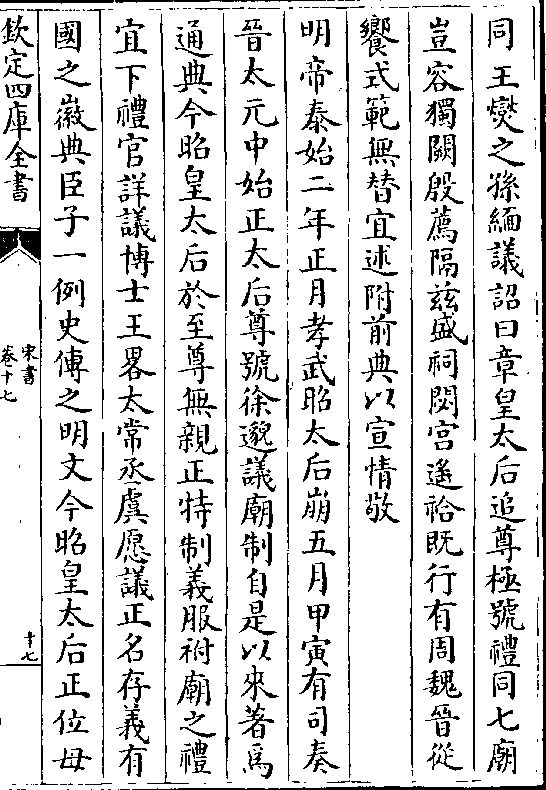 同王燮之孫緬議詔曰章皇太后追尊極號禮同七廟
豈容獨闕殷薦隔兹盛祠閟宫遥祫既行有周魏晉從
饗式範無替宜述附前典以宣情敬
明帝泰始二年正月孝武昭太后崩五月甲寅有司奏
晉太元中始正太后尊號徐邈議廟制自是以來著爲
通典今昭皇太后於至尊無親正特制義服祔廟之禮
宜下禮官詳議博士王畧太常丞虞愿議正名存義有
國之徽典臣子一例史傳之明文今昭皇太后正位母
欽定四庫全書
宋書
卷十七
十七